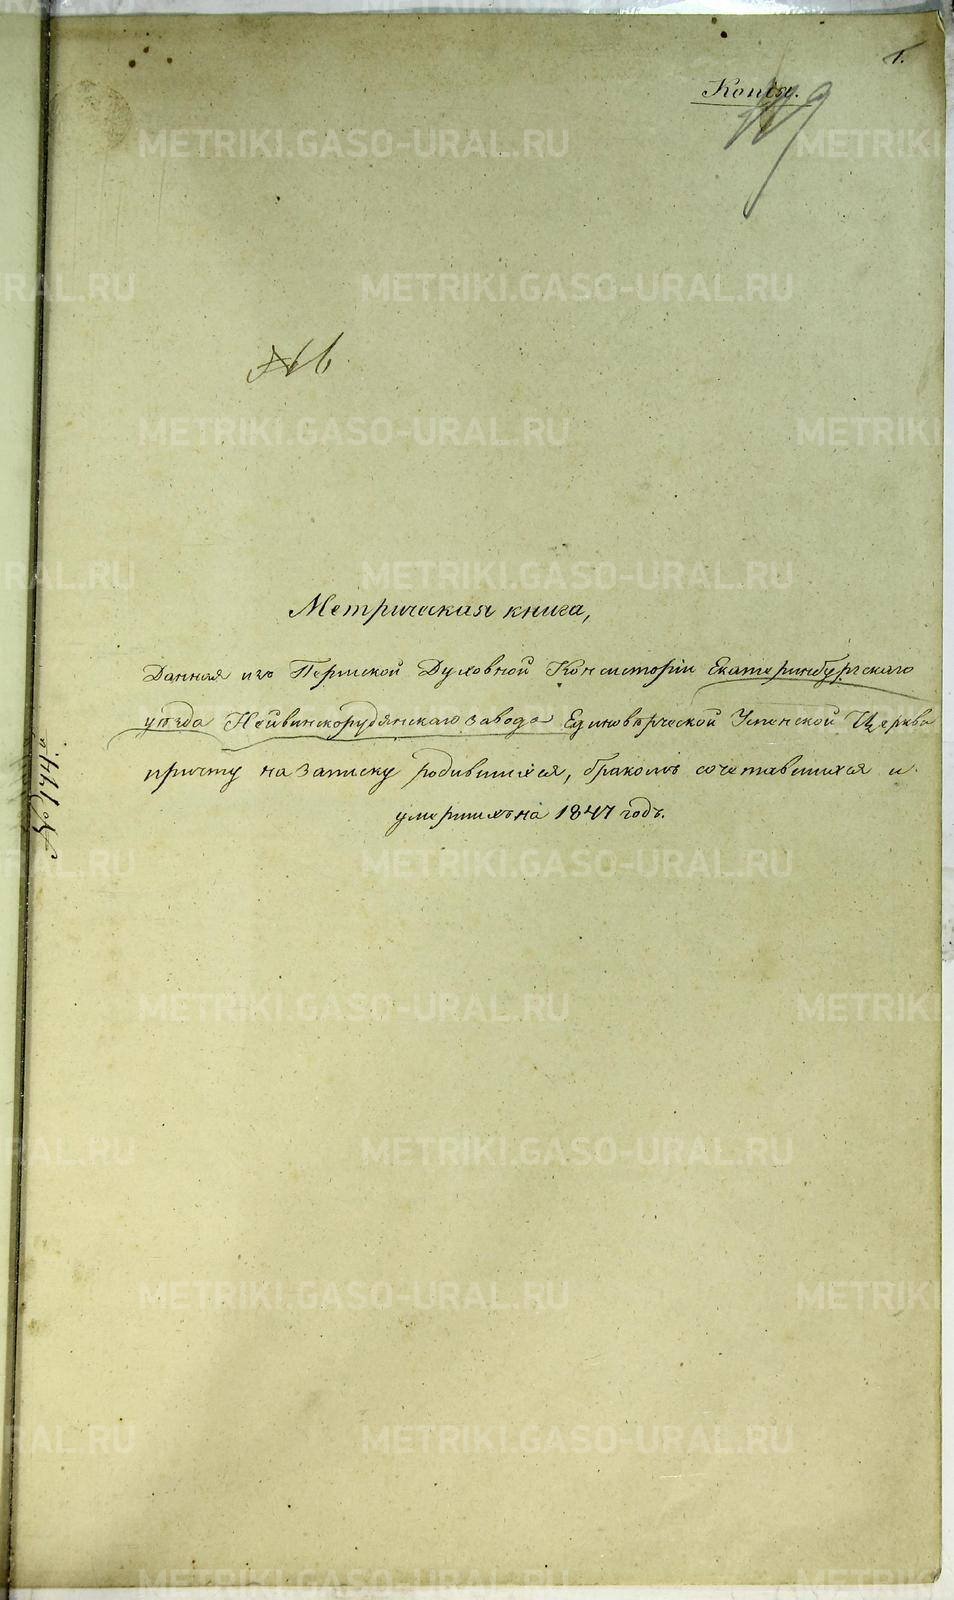 1.
Копія.
Метрическая книга,
Данная изъ Пермской Духовной Консисторіи Екатеринбургскаго
уѣзда Нейвинскорудянскаго завода Единовѣрческой Успенской Церкви
причту на записку родившихся, бракомъ сочетавшихся и
умершихъ на 1847 годъ.
METRIKI.GASO-URAL.RU